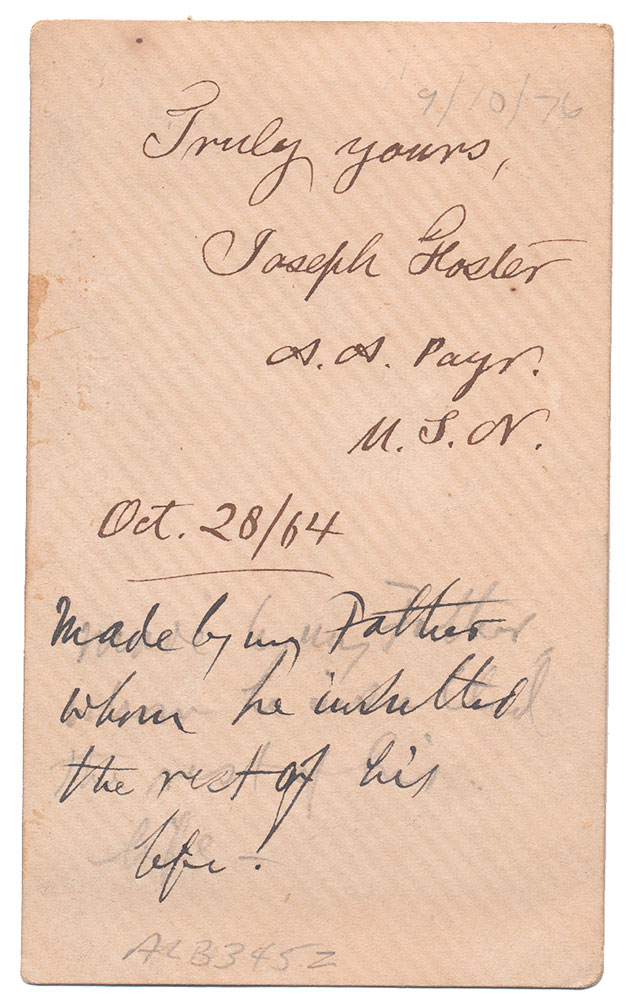 9/10/76
Truly yours,
Joseph Foster
A. A. Payr.
U. S. N.
Oct. 28/64
Made by my Father
whom he insulted
the rest of his
life.
ALB3452